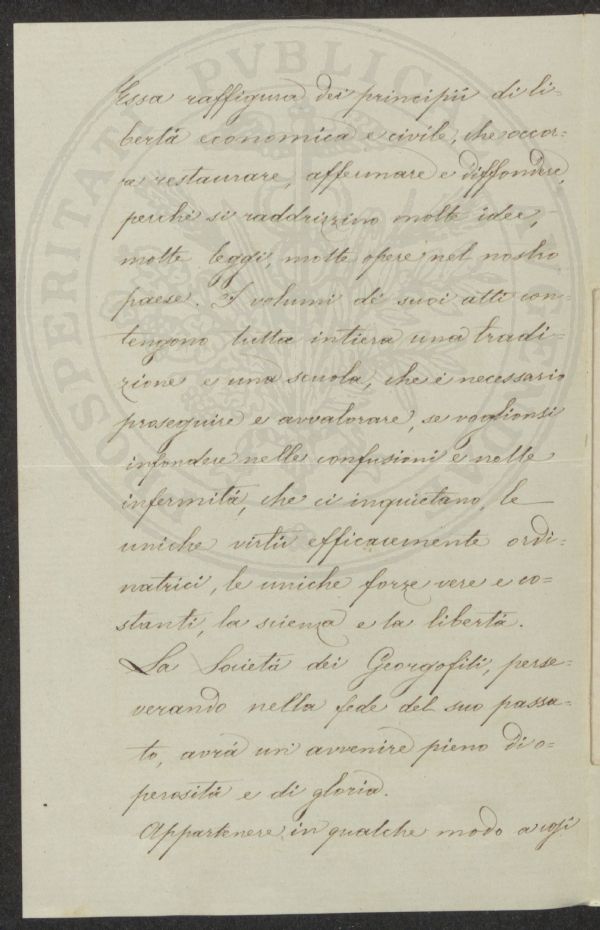 Essa raffigura dei principii di li-
bertà economica e civile, che occor-
re restaurare, affermare e diffondere,
perchè si raddrizzino molte idee,
molte leggi, molte opere nel nostro
paese. I volumi de' suoi atti con-
tengono tutta intiera una tradi-
zione e una scuola, che è necessario
proseguire e avvalorare, se voglionsi
infondere nelle confusioni e nelle
infermità, che ci inquietano, le
uniche virtù efficacemente ordi-
natrici, le uniche forze vere e co-
stanti, la scienza e la libertà.
La Società dei Georgofili, perse-
verando nella fede del suo passa-
to, avrà un avvenire pieno di o-
perosità e di gloria.
Appartenere in qualche modo a così
PROSPERITATI PVBLICAE AVGENDAE